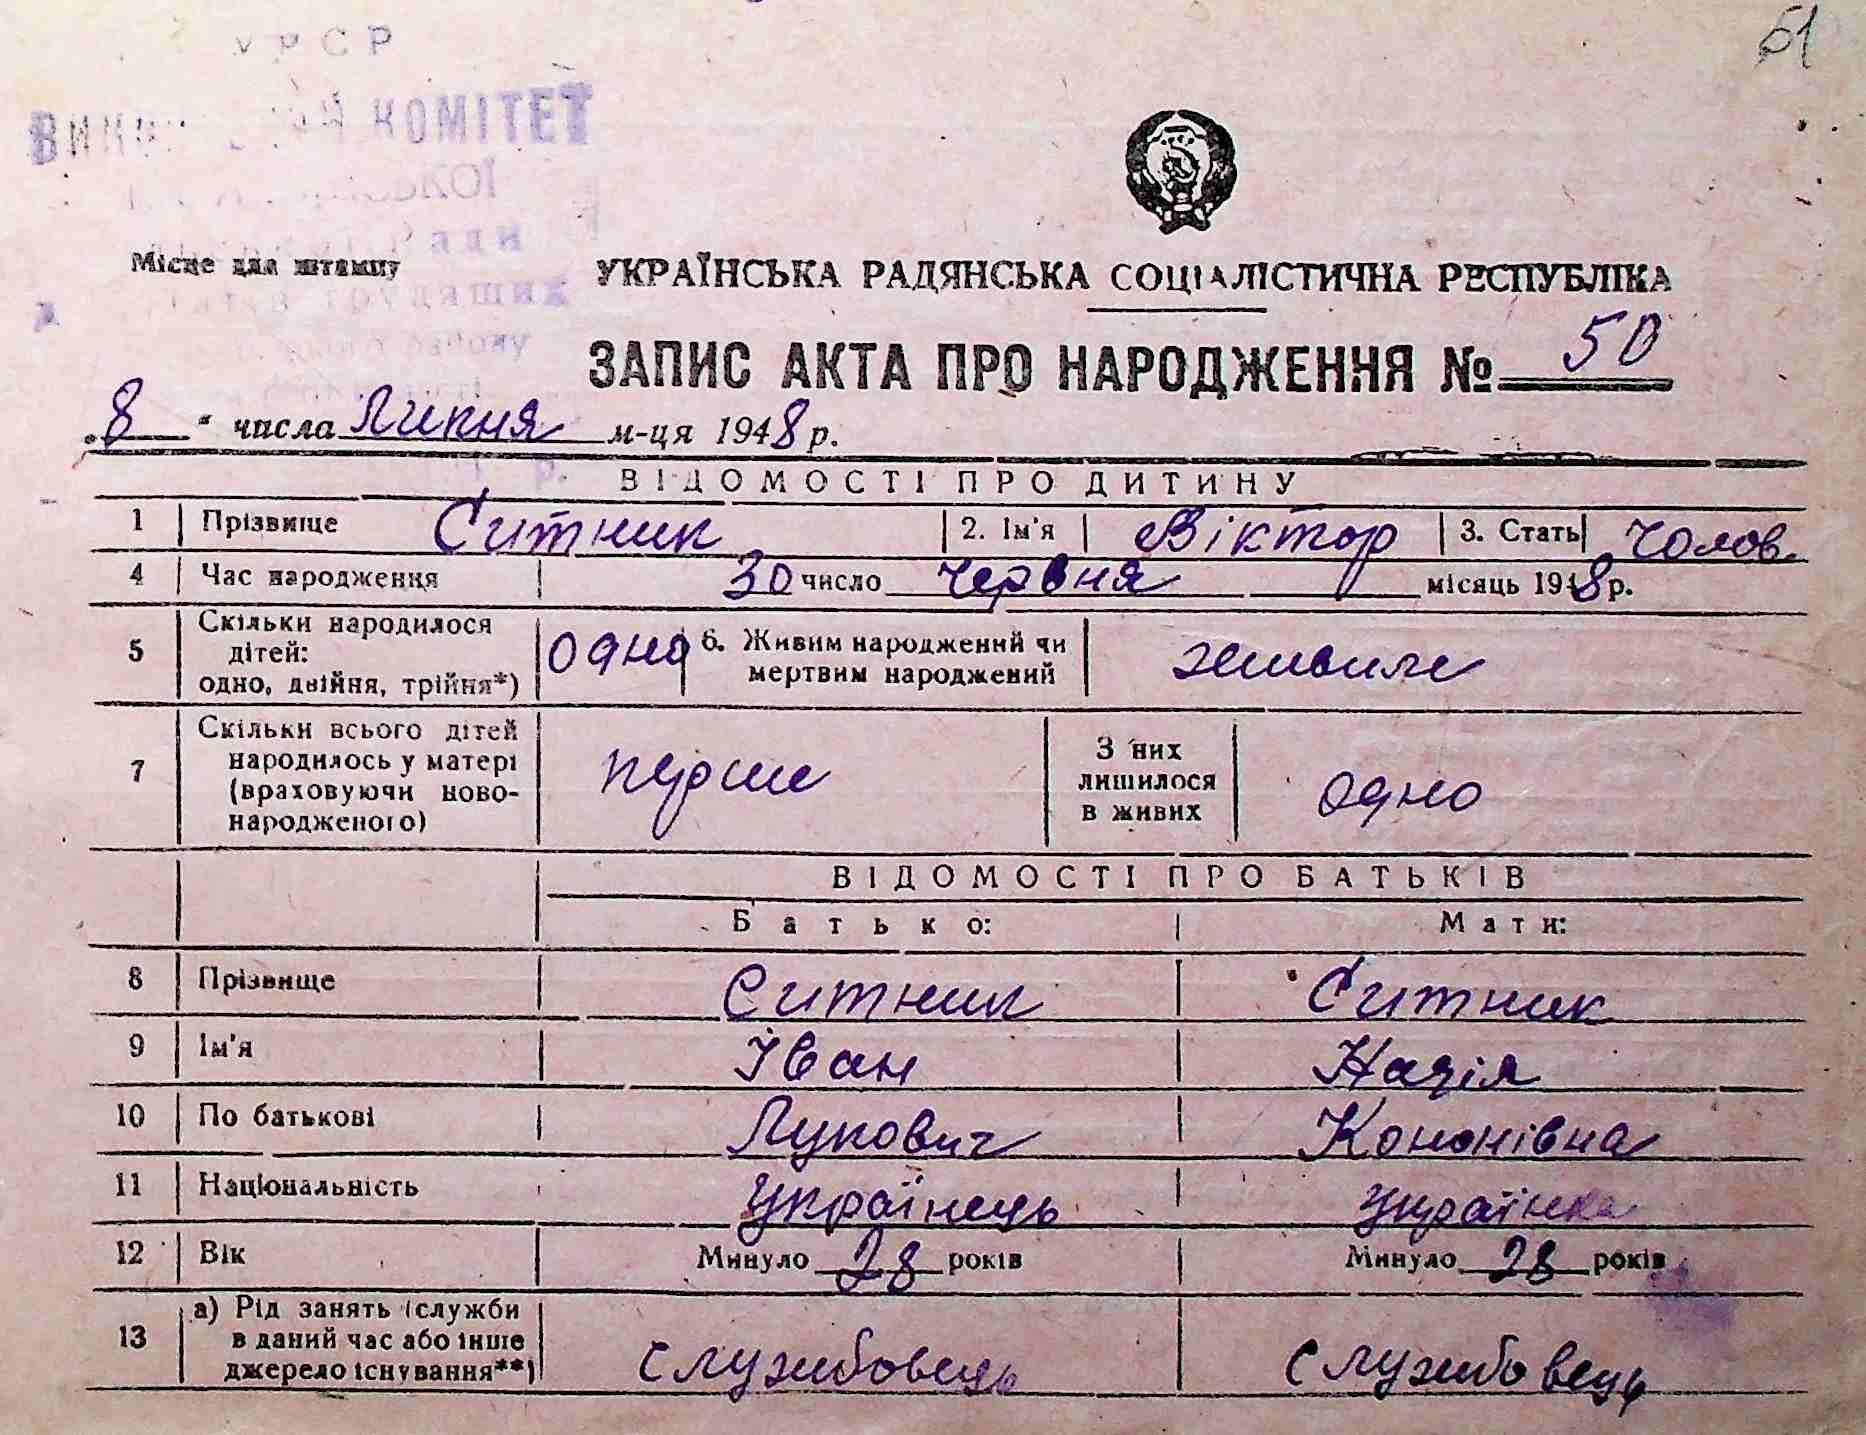 УРСР
51
КОМІТЕТ
Місце для штампу
УКРАЇНСЬКА РАДЯНСЬКА СОЦІАЛІСТИЧНА РЕСПУБЛІКА
ЗАПИС АКТА ПРО НАРОДЖЕННЯ № 50
„8“ числа Липня м-ця 1948 р.
ВІДОМОСТІ ПРО ДИТИНУ
1 Прізвище Ситник 2. Ім'я Віктор 3. Стать Чолов.
4 Час народження 30 число червня місяць 1948 р.
5 Скільки народилося дітей: одно, двійня, трійня*) одно 6. Живим народжений чи мертвим народжений живим
7 Скільки всього дітей народилось у матері (враховуючи ново-народженого) перше З них лишилося в живих одно
ВІДОМОСТІ ПРО БАТЬКІВ
Батько: Мати:
8 Прізвище Ситник Ситник
9 Ім'я Іван Надія
10 По батькові Лукович Кононівна
11 Національність Українець Українка
12 Вік Минуло 28 років Минуло 28 років
13 а) Рід занять (служби в даний час або інше джерело існування**) службовець службовець